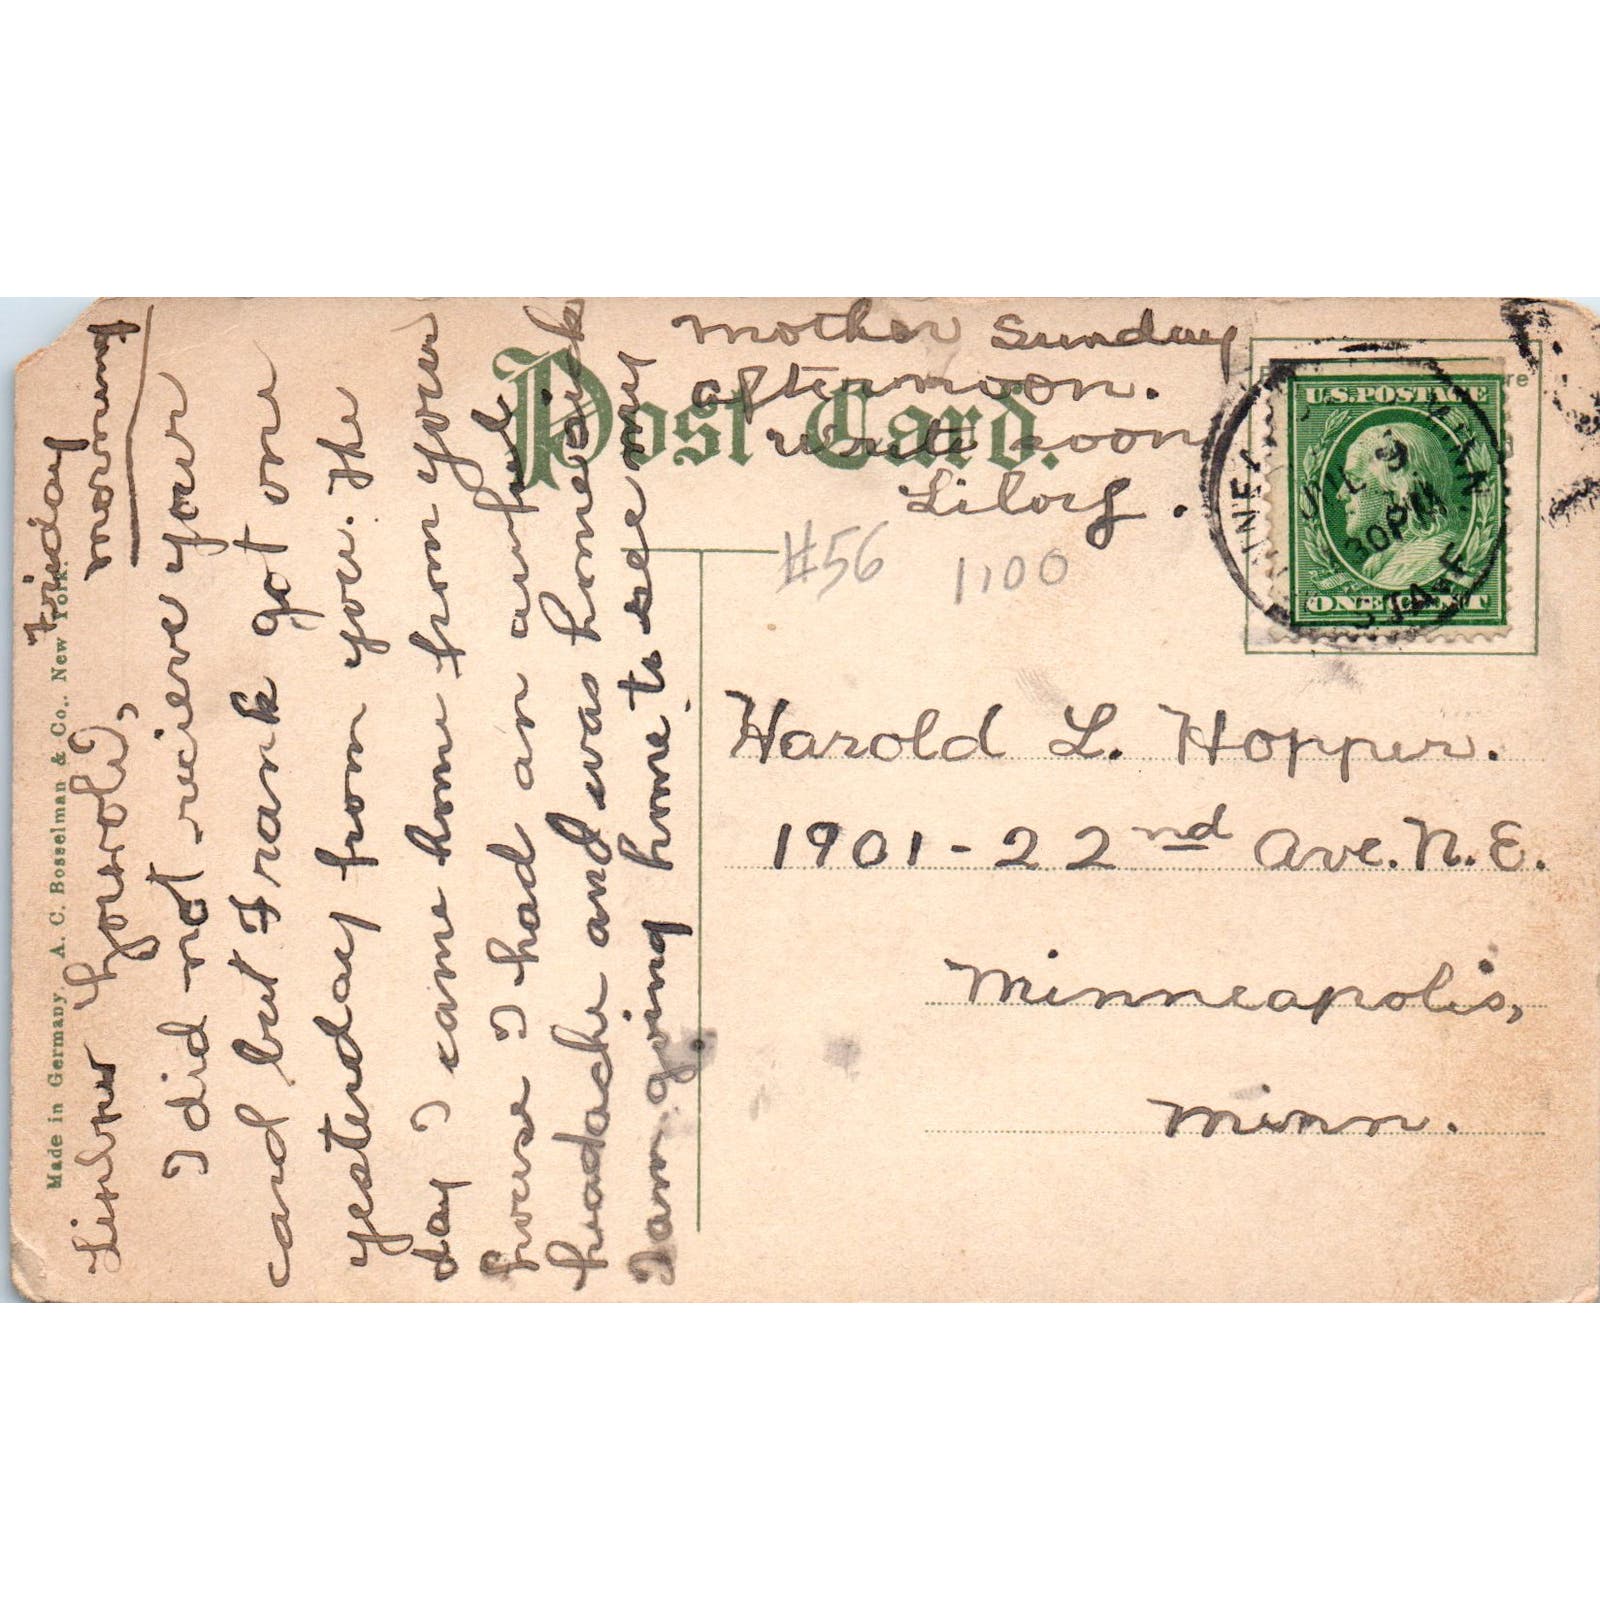 Friday
morning
Harold,
I did not recieve your
card but Frank got one
yesterday from you. The
day I came home from your
house I had an awful
headache and was homesick
I am going home to see my
mother Sunday
afternoon.
write soon
Post Card.
#56 1,00
U.S. POSTAGE
ONE CENT
MINN.
30 PM
STA. E
Harold L. Hopper.
1901-22nd Ave. N.E.
Minneapolis,
Minn.
Made in Germany A. C. Bosselman & Co., New York.